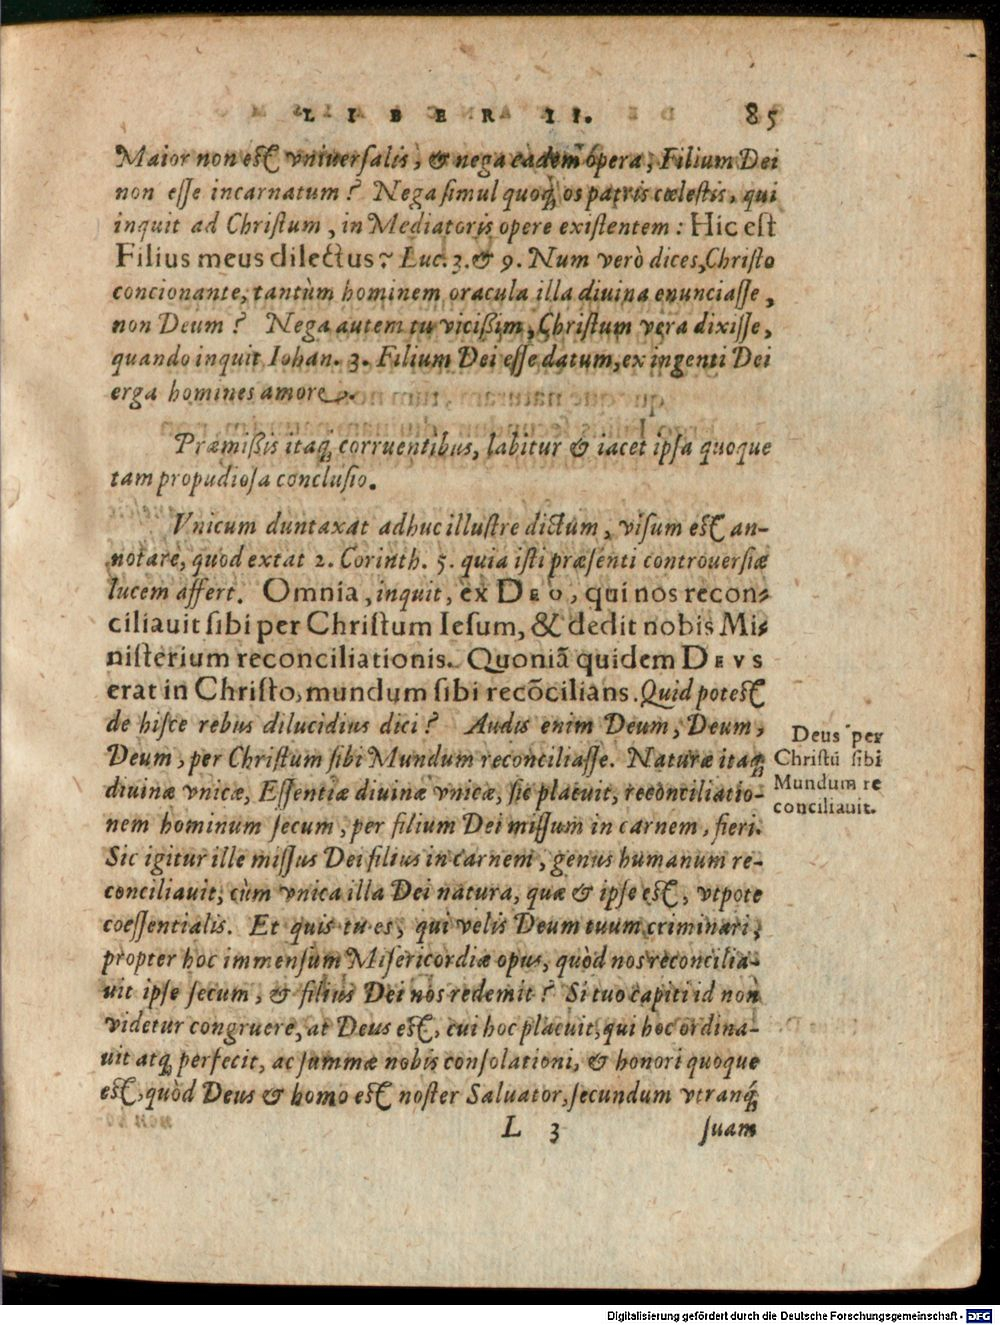 LIBER II. 85
Maior non est vniuersalis, & nega eadem opera, Filium Dei
non esse incarnatum? Nega simul quoq; os patris cœlestis, qui
inquit ad Christum, in Mediatoris opere existentem: Hic est
Filius meus dilectus? Luc. 3. & 9. Num verò dices, Christo
concionante, tantùm hominem oracula illa diuina enunciasse,
non Deum? Nega autem tu vicißim, Christum vera dixisse,
quando inquit Iohan. 3. Filium Dei esse datum, ex ingenti Dei
erga homines amore.
Præmißis itaq; corruentibus, labitur & iacet ipsa quoque
tam propudiosa conclusio.
Vnicum duntaxat adhuc illustre dictum, visum est an-
notare, quod extat 2. Corinth. 5. quia isti præsenti controuersiæ
lucem affert. Omnia, inquit, ex DEO, qui nos recon-
ciliauit sibi per Christum Iesum, & dedit nobis Mi-
nisterium reconciliationis. Quoniã quidem DEVS
erat in Christo, mundum sibi recõcilians. Quid potest
de hisce rebus dilucidius dici? Audis enim Deum, Deum,
Deum, per Christum sibi Mundum reconciliasse. Naturæ itaq;
diuinæ vnicæ, Essentiæ diuinæ vnicæ, sic placuit, reconciliatio-
nem hominum secum, per filium Dei missum in carnem, fieri.
Sic igitur ille missus Dei filius in carnem, genus humanum re-
conciliauit, cùm vnica illa Dei natura, quæ & ipse est, vtpote
coessentialis. Et quis tu es, qui velis Deum tuum criminari,
propter hoc immensum Misericordiæ opus, quòd nos reconcilia-
uit ipse secum, & filius Dei nos redemit? Si tuo capiti id non
videtur congruere, at Deus est, cui hoc placuit, qui hoc ordina-
uit atq; perfecit, ac summæ nobis consolationi, & honori quoque
est, quòd Deus & homo est noster Saluator, secundum vtranq;
L 3 suam
Deus per
Christũ sibi
Mundum re
conciliauit.
Digitalisierung gefördert durch die Deutsche Forschungsgemeinschaft - DFG